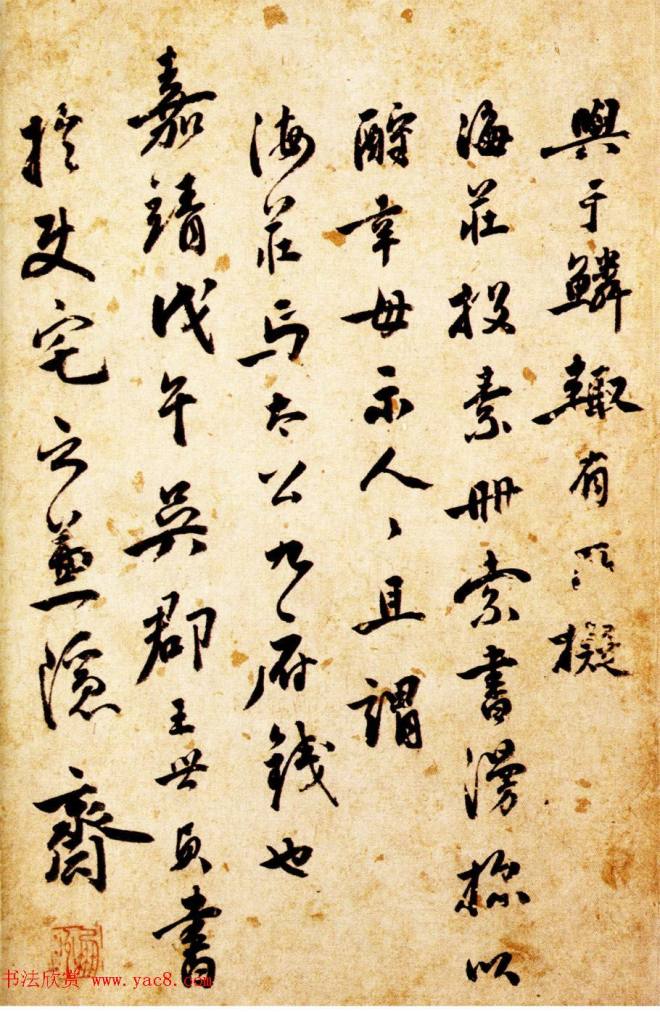 與于鱗輒有所擬
海莊投素冊索書漫掇以
酬幸毋示人人且謂
海莊為太公九府錢也
嘉靖戊午吳郡王世貞書
於使宅之兼隱齋
书法欣赏 www.yac8.com